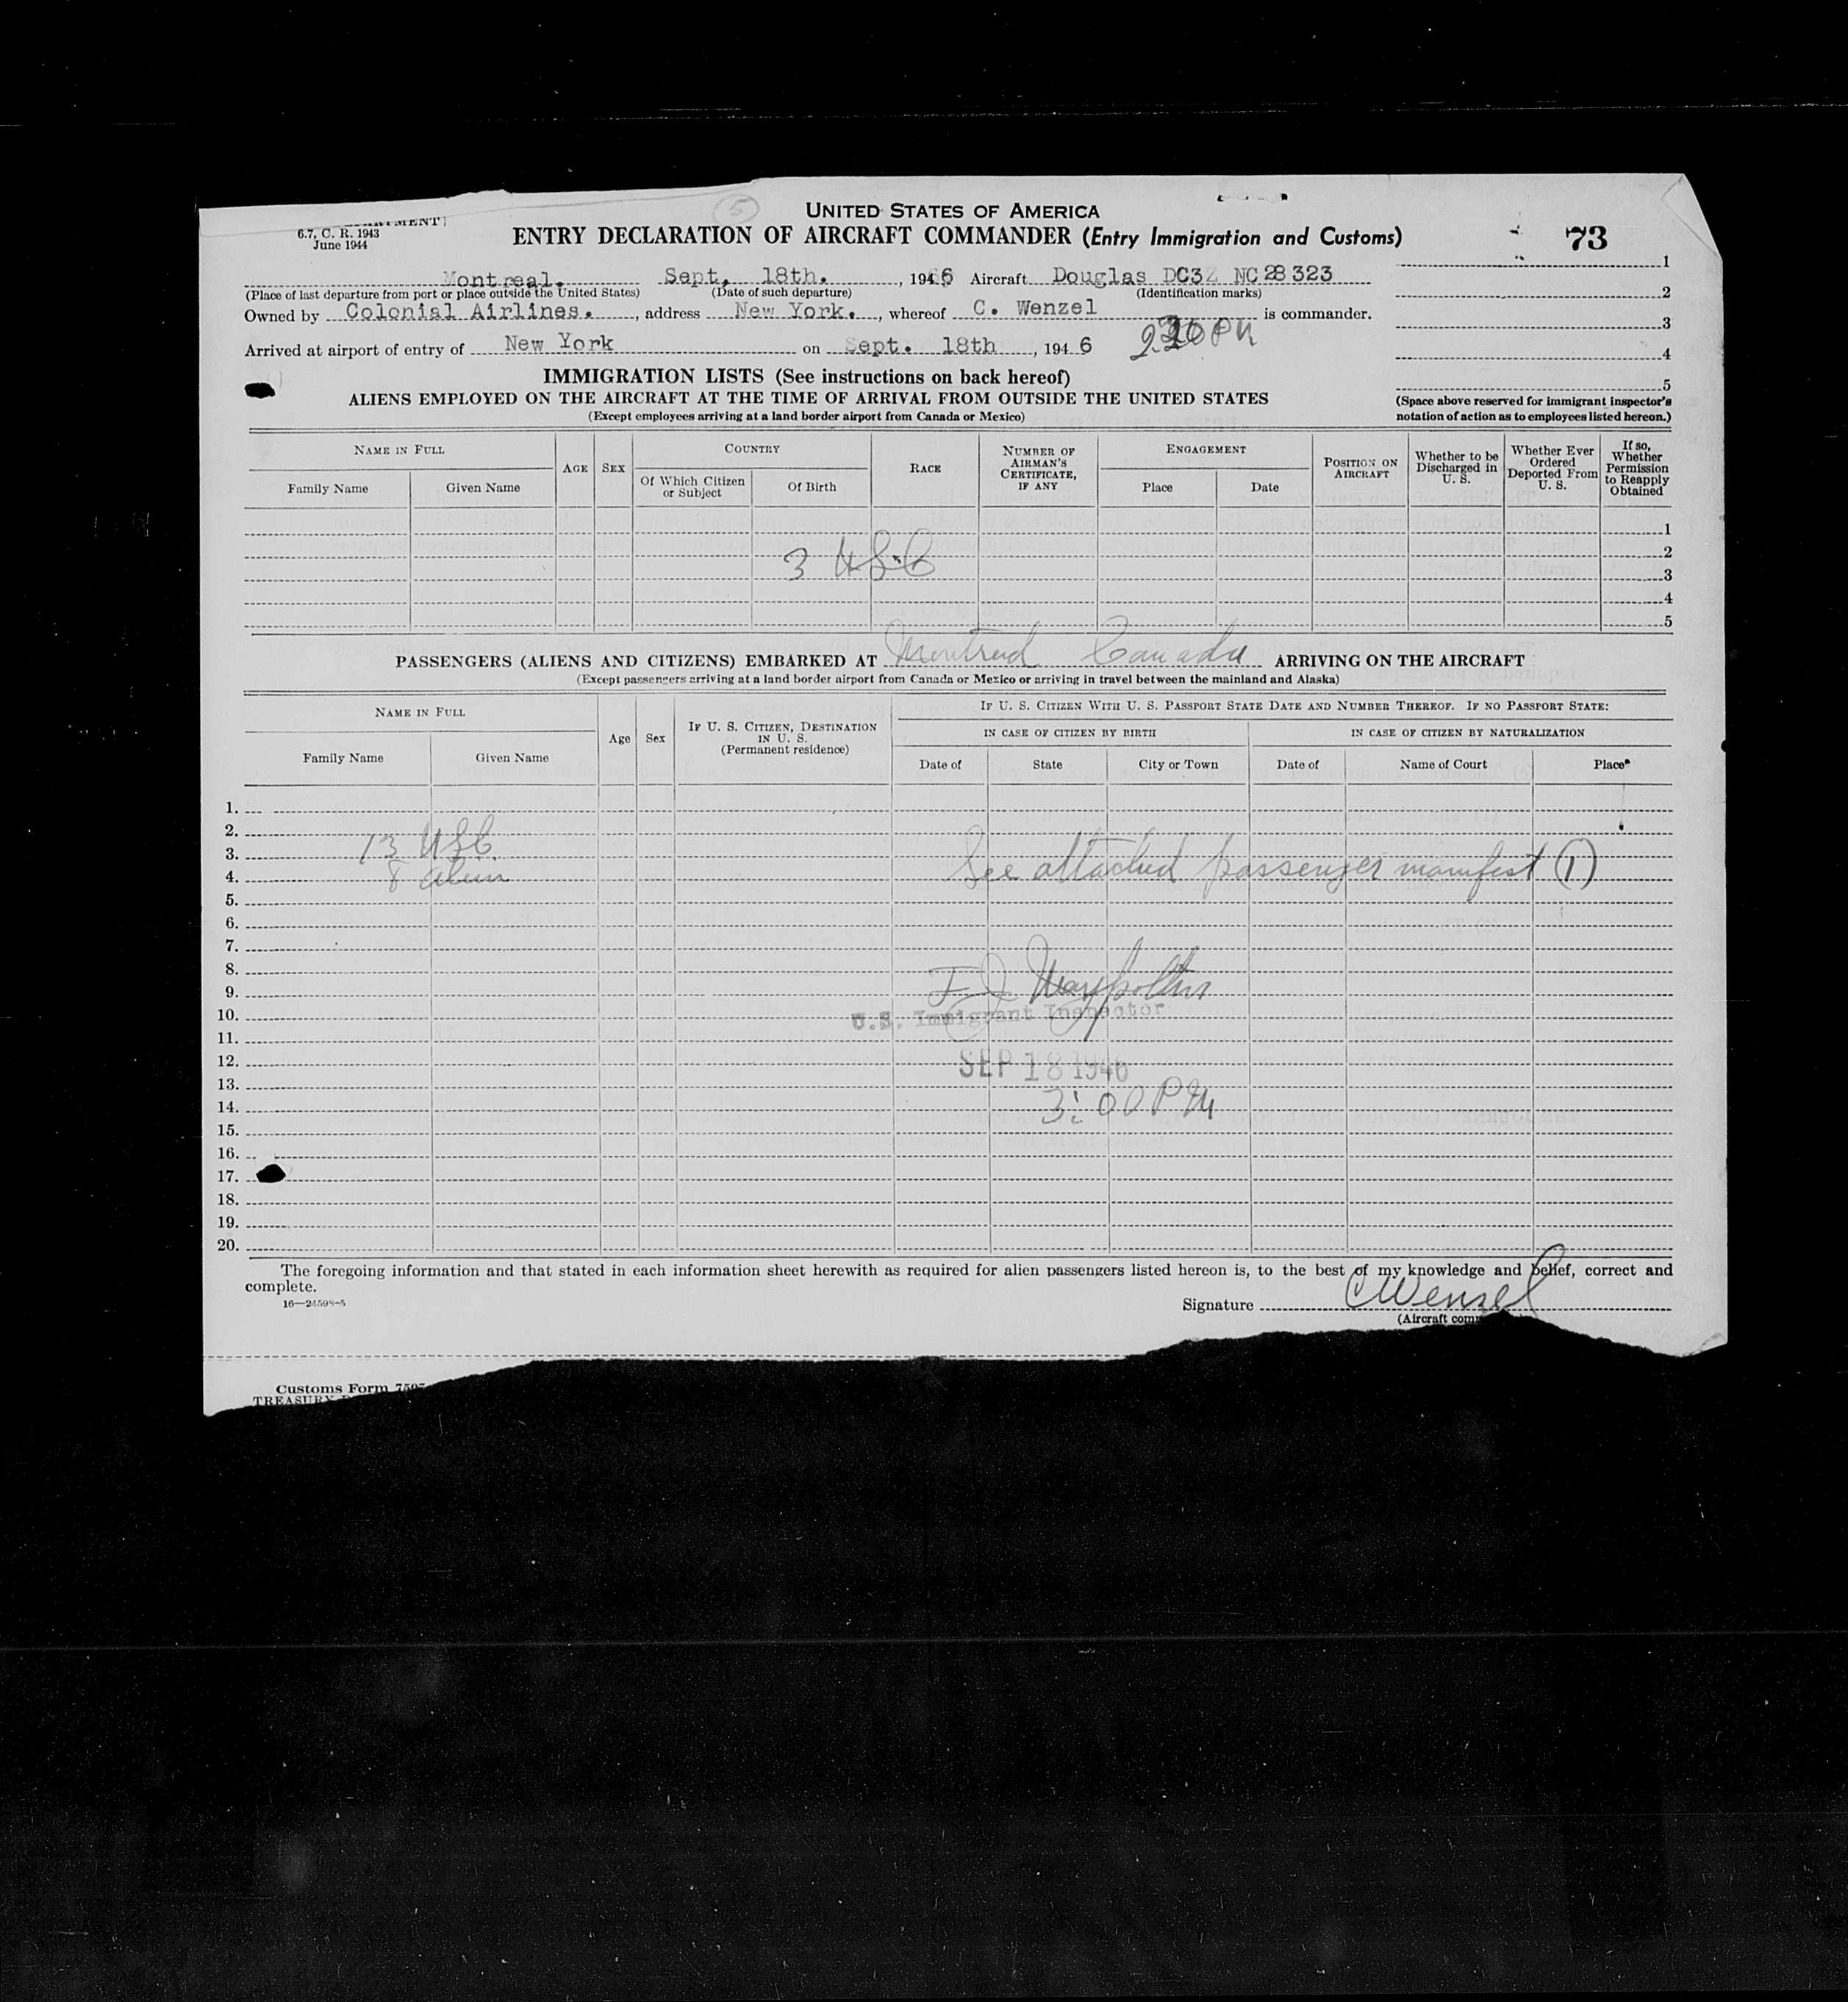 5
UNITED STATES OF AMERICA
6.7, C. R. 1943
June 1944
ENTRY DECLARATION OF AIRCRAFT COMMANDER (Entry Immigration and Customs)
73
Montreal. Sept. 18th., 1946 Aircraft Douglas DC3 NC 28323
(Place of last departure from port or place outside the United States) (Date of such departure) (Identification marks)
Owned by Colonial Airlines., address New York., whereof C. Wenzel is commander.
Arrived at airport of entry of New York on Sept. 18th, 1946 PM
1
2
3
4
5
(Space above reserved for immigrant inspector's notation of action as to employees listed hereon.)
IMMIGRATION LISTS (See instructions on back hereof)
ALIENS EMPLOYED ON THE AIRCRAFT AT THE TIME OF ARRIVAL FROM OUTSIDE THE UNITED STATES
(Except employees arriving at a land border airport from Canada or Mexico)
NAME IN FULL
Family Name Given Name
AGE SEX
COUNTRY
Of Which Citizen or Subject Of Birth
RACE
NUMBER OF AIRMAN'S CERTIFICATE, IF ANY
ENGAGEMENT
Place Date
POSITION ON AIRCRAFT
Whether to be Discharged in U. S.
Whether Ever Ordered Deported From U. S.
If so, Whether Permission to Reapply Obtained
1
2
3 USC
3
4
5
PASSENGERS (ALIENS AND CITIZENS) EMBARKED AT Montreal Canada ARRIVING ON THE AIRCRAFT
(Except passengers arriving at a land border airport from Canada or Mexico or arriving in travel between the mainland and Alaska)
NAME IN FULL
Family Name Given Name
Age Sex
IF U. S. CITIZEN, DESTINATION IN U. S.
(Permanent residence)
IF U. S. CITIZEN WITH U. S. PASSPORT STATE DATE AND NUMBER THEREOF. IF NO PASSPORT STATE:
IN CASE OF CITIZEN BY BIRTH IN CASE OF CITIZEN BY NATURALIZATION
Date of State City or Town Date of Name of Court Place
1.
2.
3. 13 USC
4. 8 alien See attached passenger manifest (1)
5.
6.
7.
8.
9. F. J.
10. U.S. Immigrant Inspector
11.
12. SEP 18 1946
13.
14. 3:00 PM
15.
16.
17.
18.
19.
20.
The foregoing information and that stated in each information sheet herewith as required for alien passengers listed hereon is, to the best of my knowledge and belief, correct and
complete.
16—24598-5
Signature C Wenzel
(Aircraft
Customs Form
TREASURY